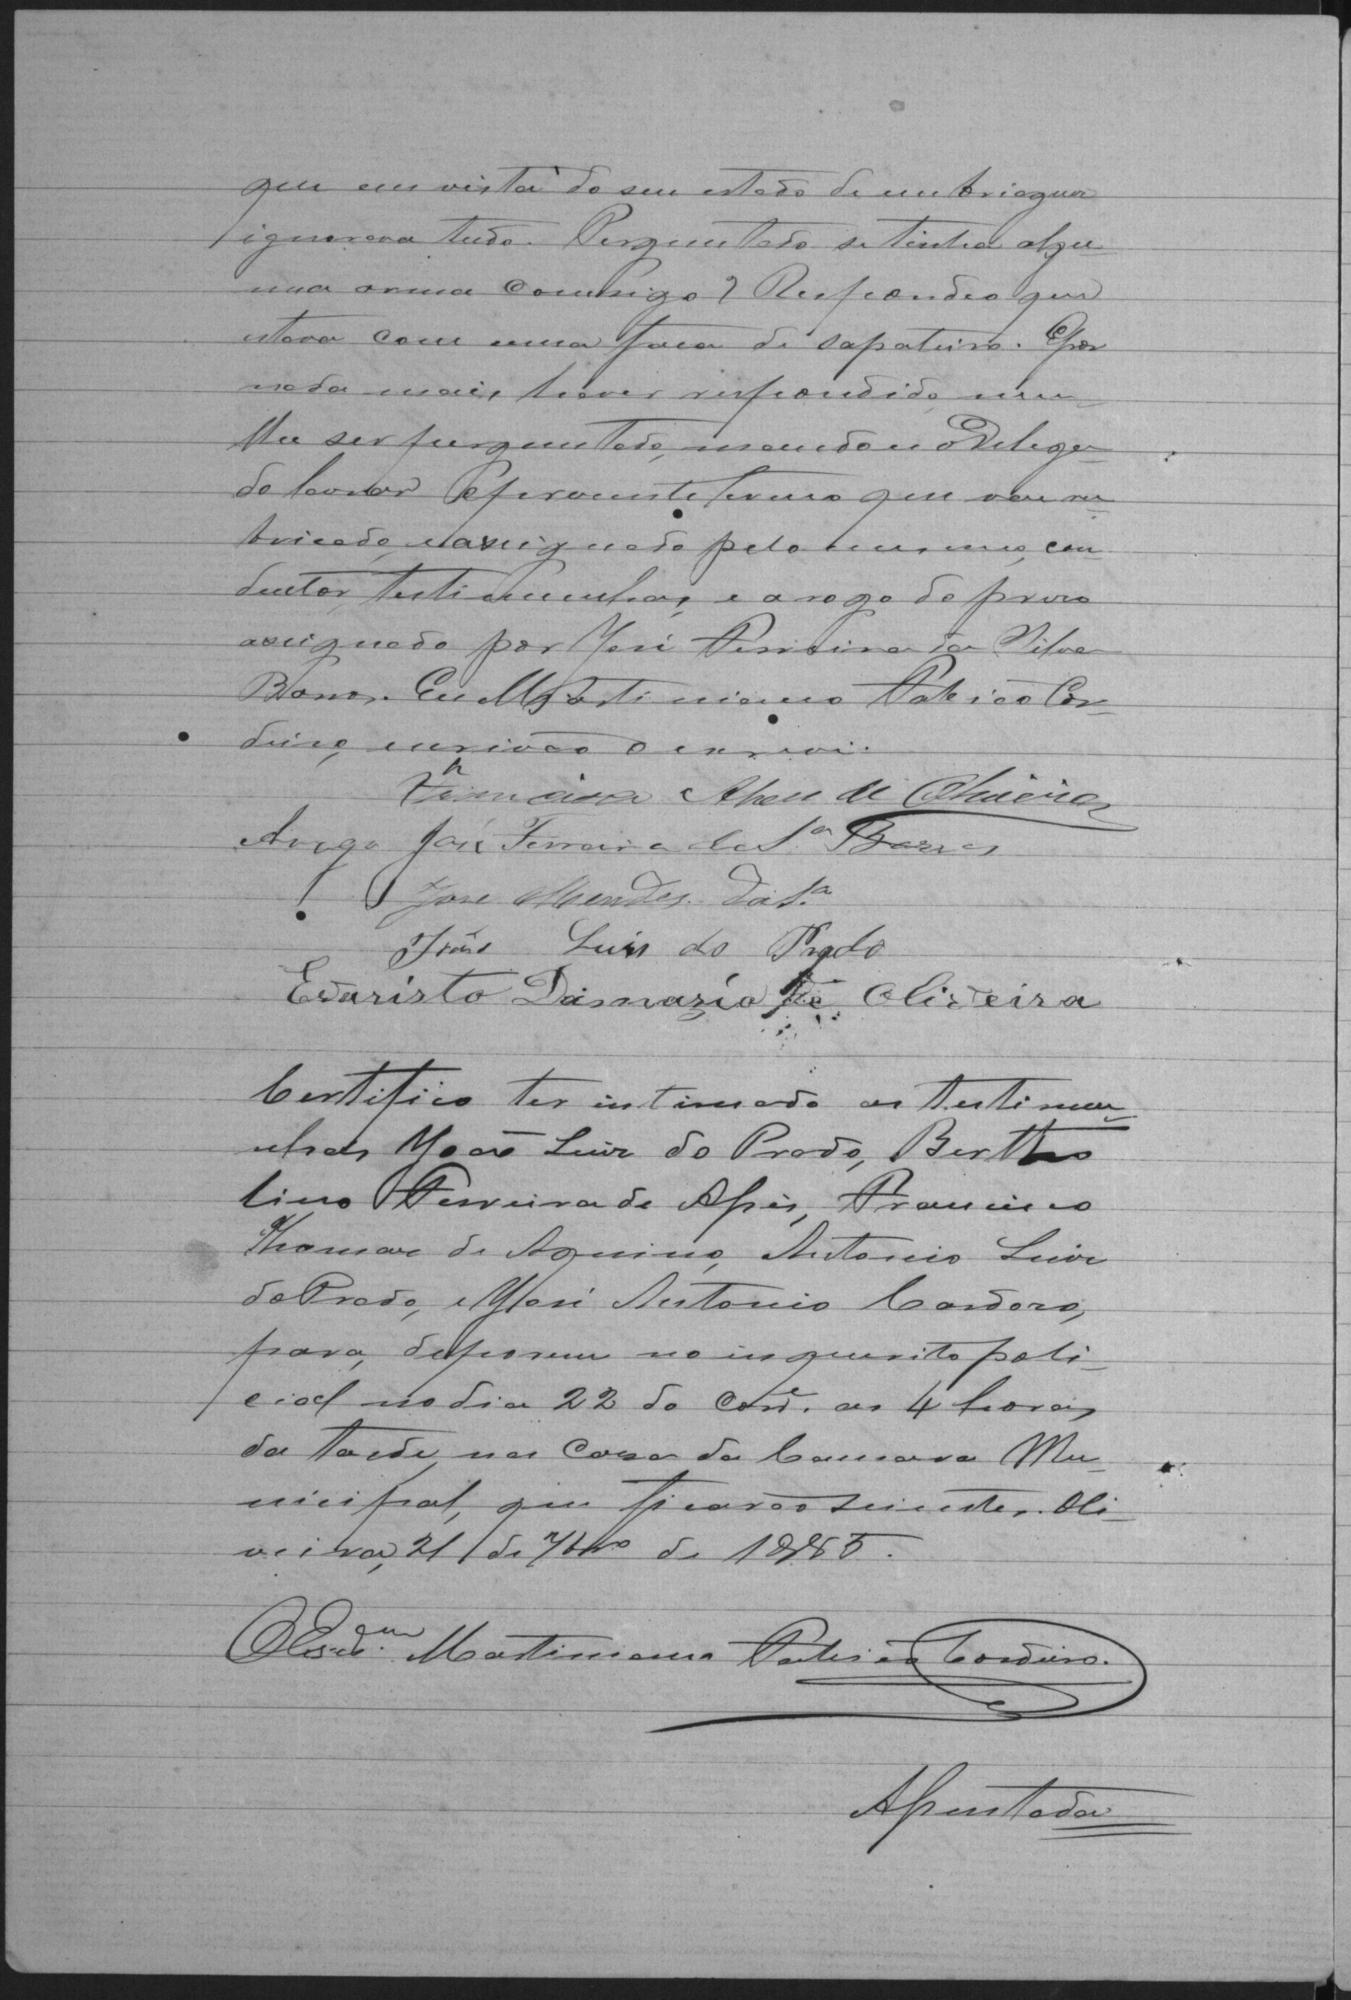 que em vista do seu estado de embriaguez
ignorava tudo. Perguntado se tinha algu-
ma arma comsigo? Respondeo que
estava com uma faca de sapateiro. E por
nada mais haver respondido nem
lhe ser perguntado, mandou o Delega-
do lavrar o presente termo que vae ru-
bricado, e assignado pelo mesmo, con-
ductor, testimunhas, e a rogo do prezo
assignado por José Ferreira da Silva
Barros. Eu Martiniano Patricio Cor-
deiro, escrivão o escrevi.
Francisco Abreu de Oliveira
Arogo José Ferreira da S.ª Barros
José Mendes da S.ª
João Luis do Prado
Evaristo Damazio de Oliveira
Certifico ter intimado as testimu-
nhas João Luiz do Prado, Bertho
lino Ferreira de Assis, Francisco
Thomaz de Aquino, Antonio Luiz
do Prado, e José Antonio Cardozo,
para, deporem no inquerito poli-
cial no dia 22 do corr.e as 4 horas
da tarde, na Casa da Camara Mu-
nicipal, que ficarão scientes. Oli-
veira, 21 de 7bro de 1885.
O Escr.am Martiniano Patricio Cordeiro.
Apresentada